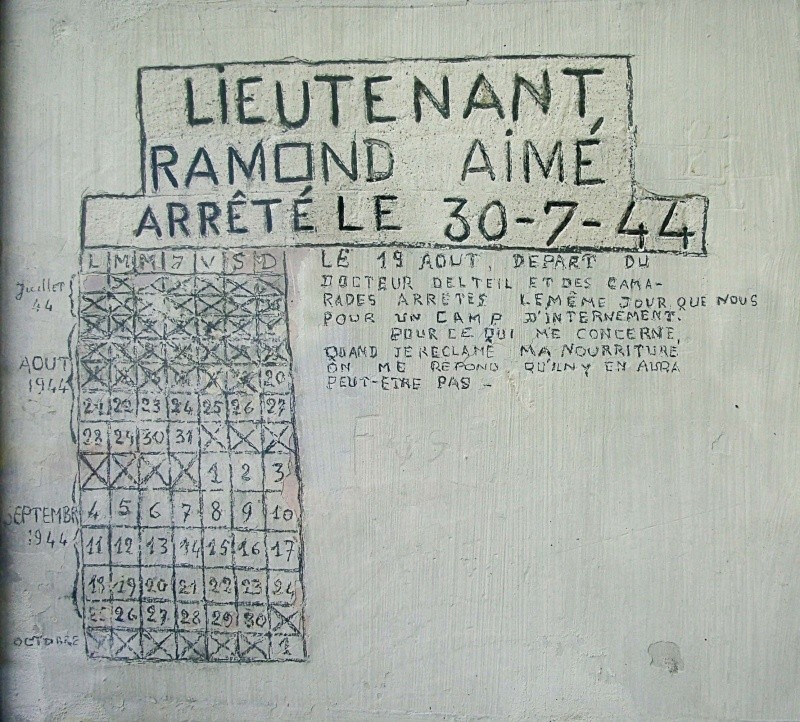 LIEUTENANT
RAMOND AIMÉ
ARRÊTÉ LE 30-7-44
L M M J V S D
Juillet
44
AOUT
1944
20
21 22 23 24 25 26 27
28 29 30 31
1 2 3
SEPTEMBR
1944
4 5 6 7 8 9 10
11 12 13 14 15 16 17
18 19 20 21 22 23 24
25 26 27 28 29 30
OCTOBRE
1
LE 19 AOUT, DEPART DU
DOCTEUR DELTEIL ET DES CAMA-
RADES ARRETES LE MÊME JOUR QUE NOUS
POUR UN CAMP D'INTERNEMENT.
POUR CE QUI ME CONCERNE,
QUAND JE RECLAME MA NOURRITURE
ON ME REPOND QU'IL N'Y EN AURA
PEUT-ETRE PAS -